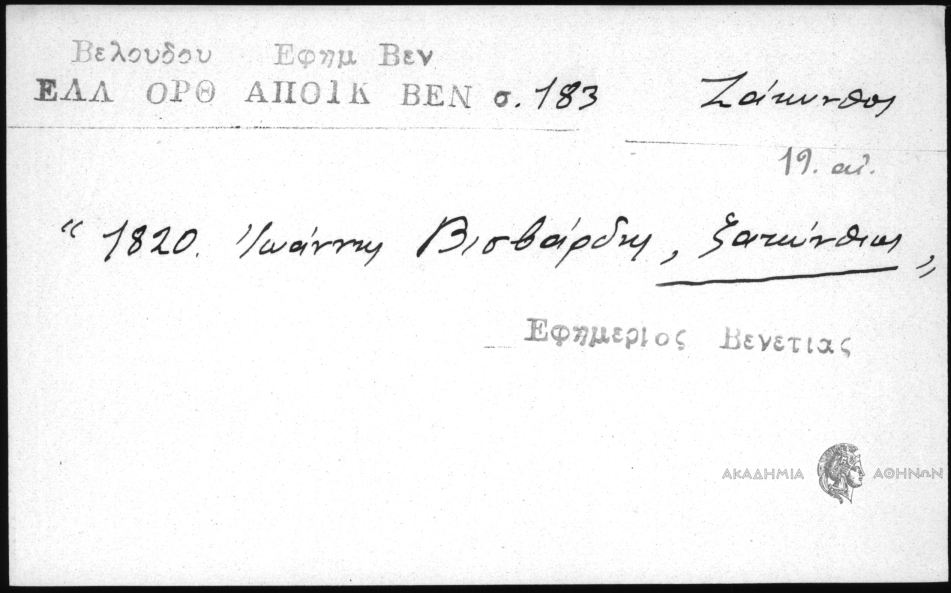 Βελουδου Εφημ Βεν
ΕΛΛ ΟΡΘ ΑΠΟΙΚ ΒΕΝ σ. 183 Ζάκυνθος
19. αἰ.
“ 1820. Ἰωάννης Βισβάρδης, ζακύνθιος „
Εφημεριος Βενετιας
ΑΚΑΔΗΜΙΑ ΑΘΗΝΩΝ